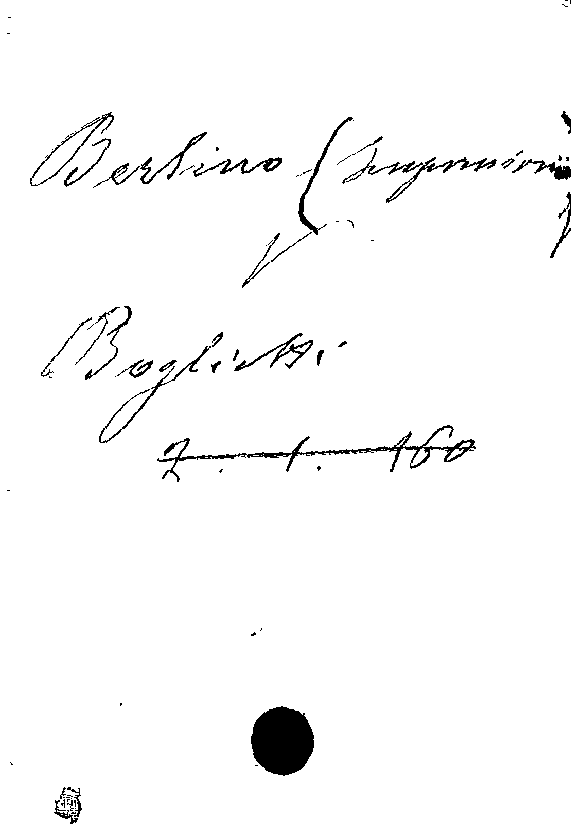 Berlino (Impressioni)
Boglietti
7. 1. 160